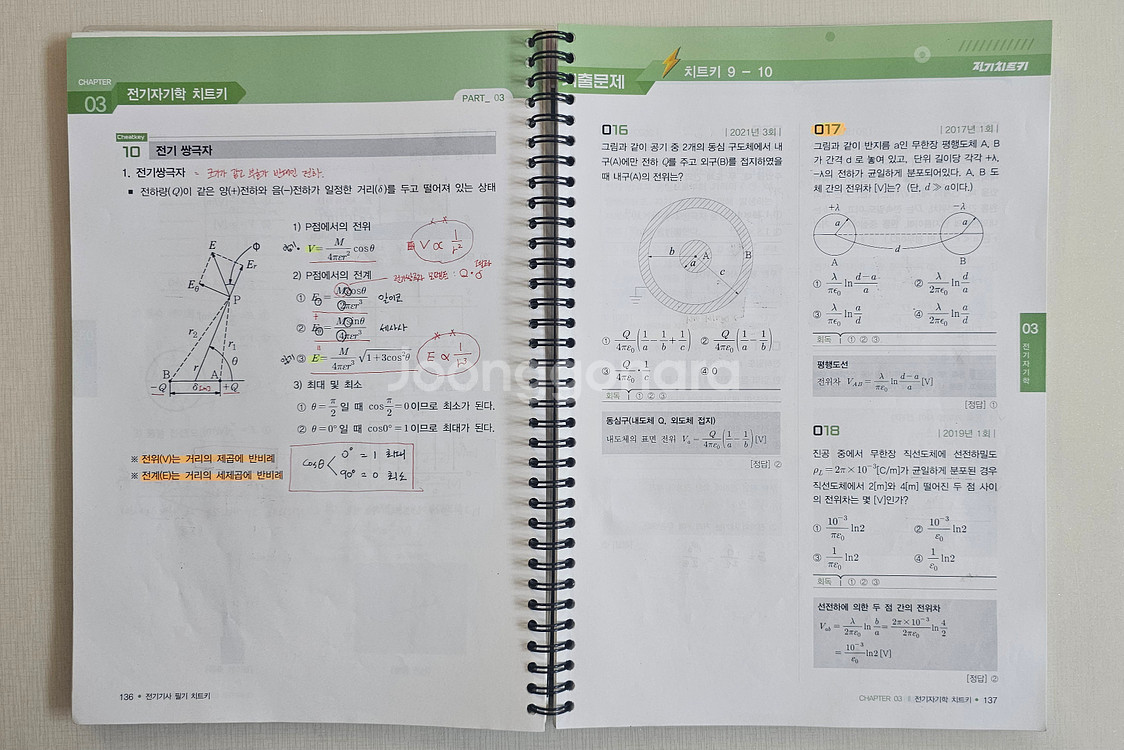 CHAPTER
03
전기자기학 치트키
PART_ 03
Cheatkey
10
전기 쌍극자
1. 전기쌍극자
■ 전하량(Q)이 같은 양(+)전하와 음(-)전하가 일정한 거리(δ)를 두고 떨어져 있는 상태
E
Φ
E_r
E_θ
P
r_2
r_1
r
θ
B
A
-Q
δ
+Q
1) P점에서의 전위
V = M/4πεr² cosθ
V ∝ 1/r²
2) P점에서의 전계
Q·δ
①
②
③ E = M/4πεr³ √1+3cos²θ
E ∝ 1/r³
3) 최대 및 최소
① θ = π/2 일 때 cos π/2 = 0이므로 최소가 된다.
② θ = 0° 일 때 cos0° = 1이므로 최대가 된다.
※ 전위(V)는 거리의 제곱에 반비례
※ 전계(E)는 거리의 세제곱에 반비례
cosθ
0° = 1 최대
90° = 0 최소
136 • 전기기사 필기 치트키
기출문제
치트키 9 - 10
전기치트키
016
| 2021년 3회 |
그림과 같이 공기 중 2개의 동심 구도체에서 내
구(A)에만 전하 Q를 주고 외구(B)를 접지하였을
때 내구(A)의 전위는?
b
A
B
a
c
① Q/4πε₀ (1/a - 1/b + 1/c)
② Q/4πε₀ (1/a - 1/b)
③ Q/4πε₀ · 1/c
④ 0
회독 ① ② ③
동심구(내도체 Q, 외도체 접지)
내도체의 표면 전위 V_a = Q/4πε₀ (1/a - 1/b) [V]
[정답] ②
017
| 2017년 1회 |
그림과 같이 반지름 a인 무한장 평행도체 A, B
가 간격 d 로 놓여 있고, 단위 길이당 각각 +λ,
-λ의 전하가 균일하게 분포되어있다. A, B 도
체 간의 전위차 [V]는? (단, d ≫ a이다.)
+λ
-λ
a
a
d
A
B
① λ/πε₀ ln d-a/a
② λ/2πε₀ ln d/a
③ λ/πε₀ ln a/d
④ λ/2πε₀ ln a/d
회독 ① ② ③
평행도선
전위차 V_AB = λ/πε₀ ln d-a/a [V]
[정답] ①
018
| 2019년 1회 |
진공 중에서 무한장 직선도체에 선전하밀도
ρ_L = 2π×10⁻³[C/m]가 균일하게 분포된 경우
직선도체에서 2[m]와 4[m] 떨어진 두 점 사이
의 전위차는 몇 [V]인가?
① 10⁻³/πε₀ ln2
② 10⁻³/ε₀ ln2
③ 1/πε₀ ln2
④ 1/ε₀ ln2
회독 ① ② ③
선전하에 의한 두 점 간의 전위차
V_ab = λ/2πε₀ ln b/a = 2π×10⁻³/2πε₀ ln 4/2
= 10⁻³/ε₀ ln2 [V]
[정답] ②
03
전기자기학
CHAPTER 03 전기자기학 치트키 • 137
Joonggonara